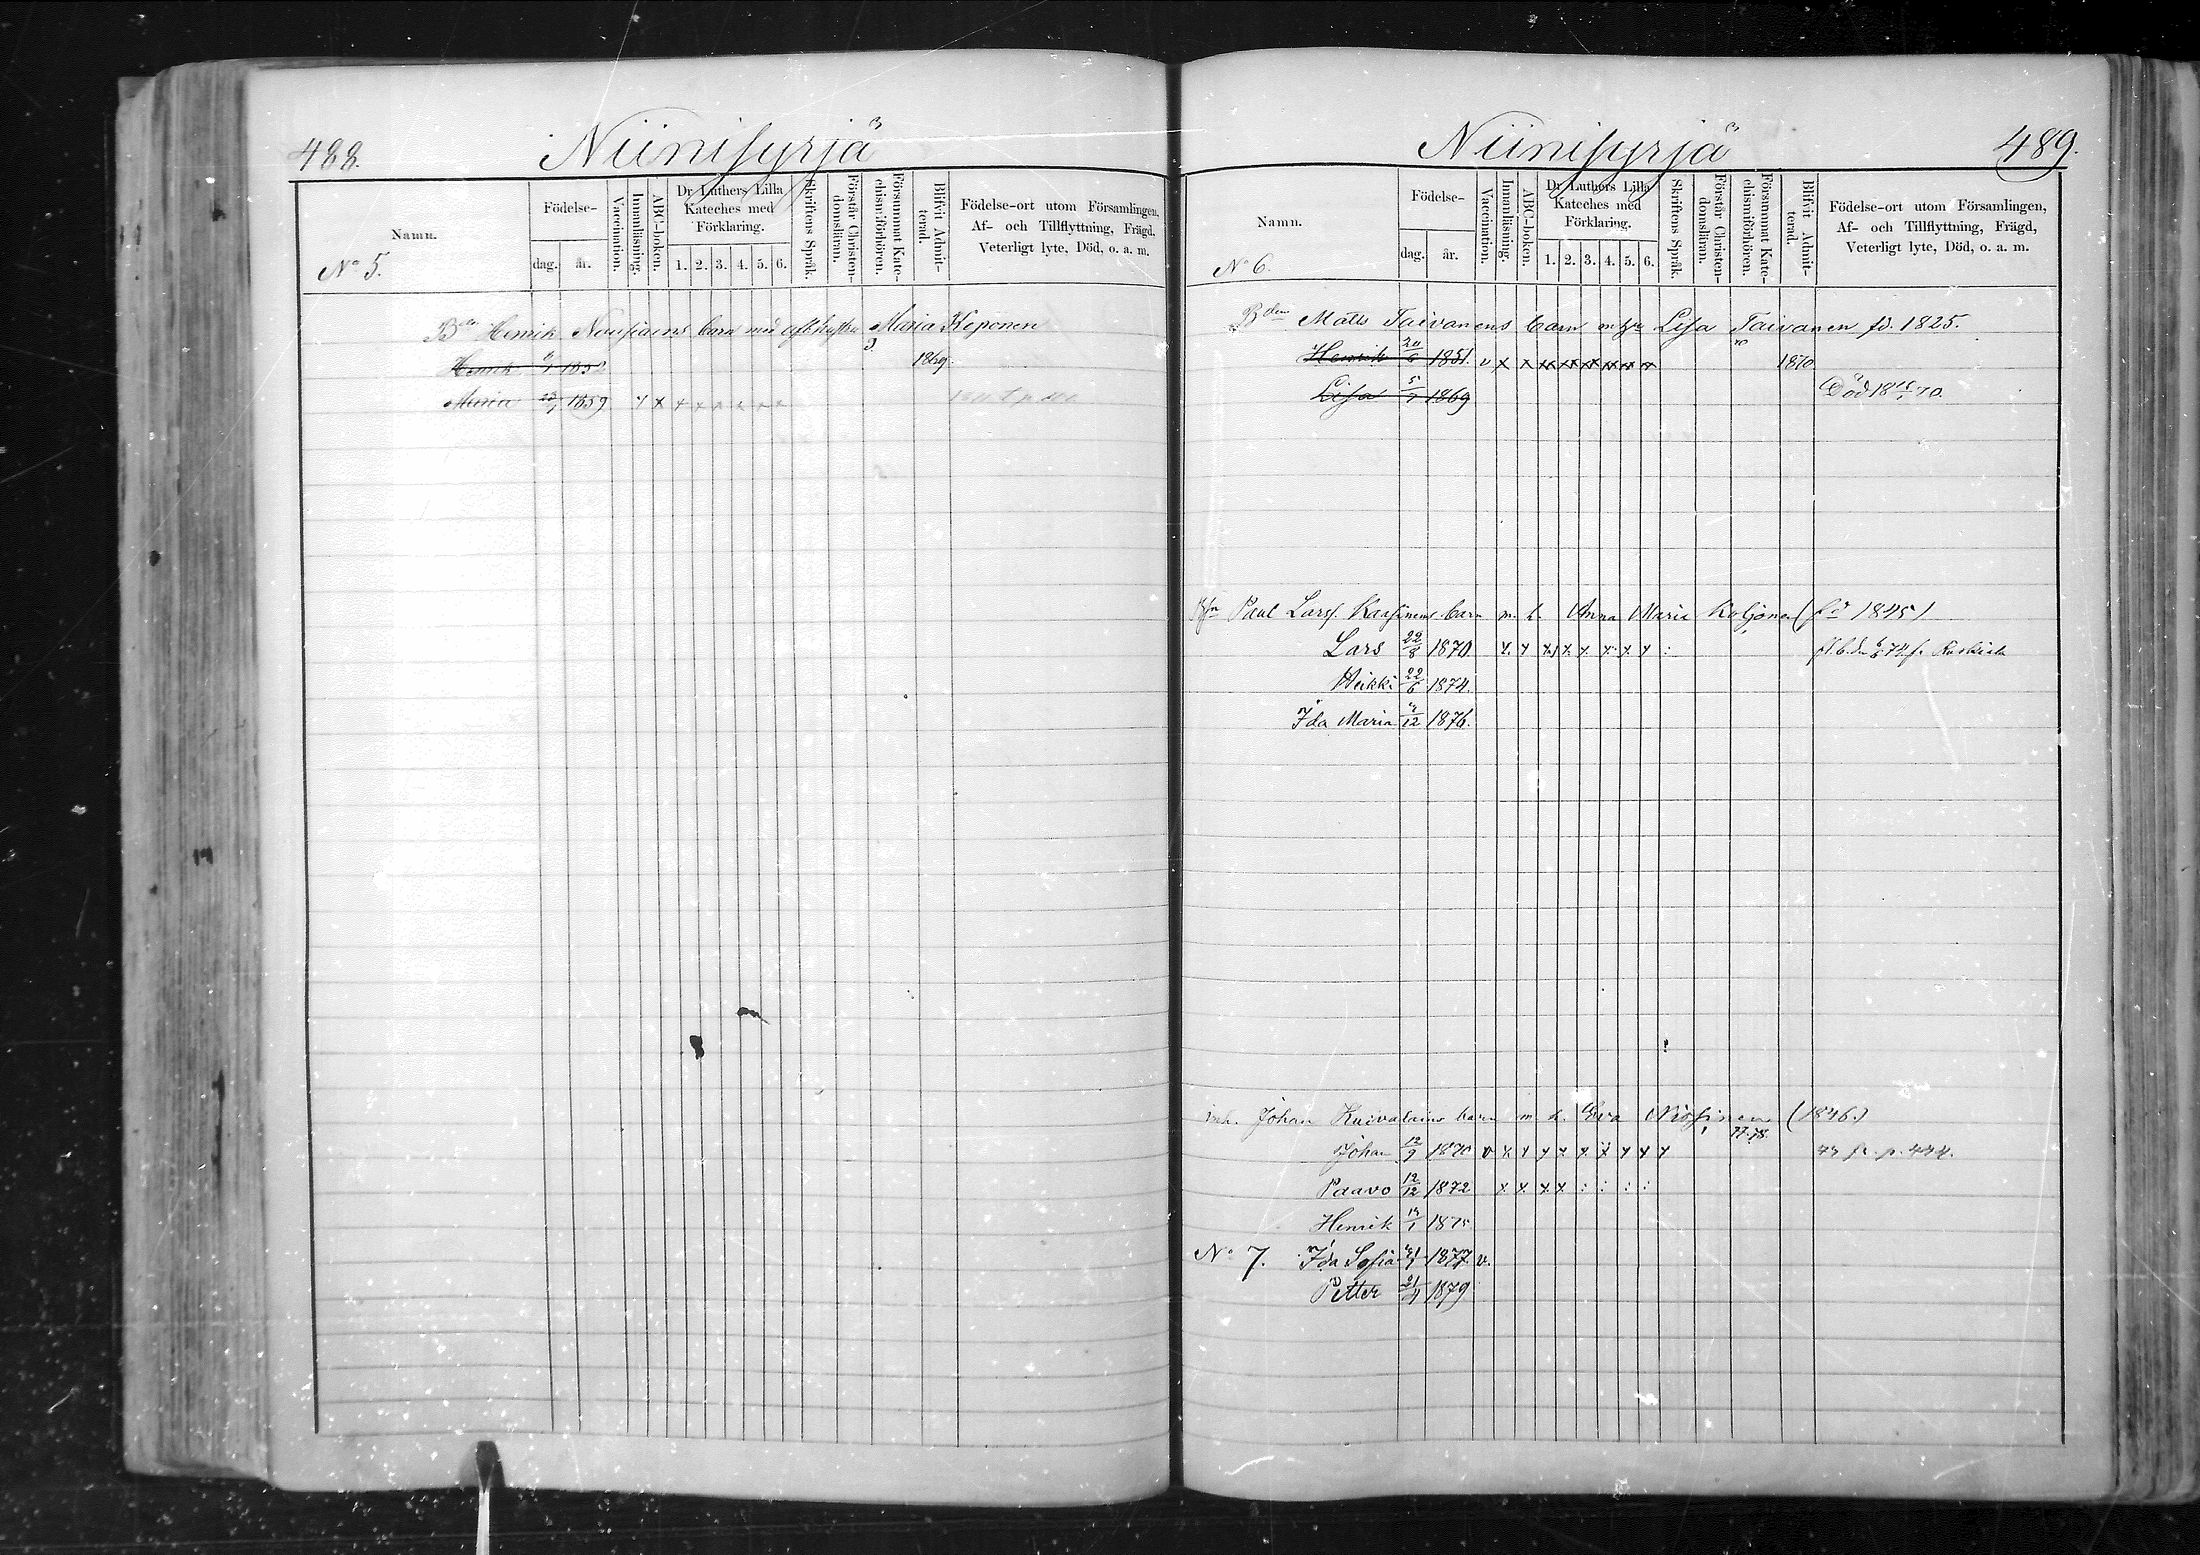 488.
Niinisyrjä
Namn.
Födelse-
dag.
år.
Vaccination.
Innanläsning.
ABC-boken.
Dr Luthers Lilla
Kateches med
Förklaring.
1. 2. 3. 4. 5. 6.
Skriftens Språk.
Förstår Christen-
domsläran.
Försummat Kate-
chismiförhören.
Blifvit Admit-
terad.
Födelse-ort utom Församlingen,
Af- och Tillflyttning, Frägd,
Veterligt lyte, Död, o. a. m.
No 5.
Henrik barn med Maria Keponen
Henrik 1869.
Maria 1859 x x x x x x x
Niinisyrjä
489.
Namn.
Födelse-
dag.
år.
Vaccination.
Innanläsning.
ABC-boken.
Dr Luthers Lilla
Kateches med
Förklaring.
1. 2. 3. 4. 5. 6.
Skriftens Språk.
Förstår Christen-
domsläran.
Försummat Kate-
chismiförhören.
Blifvit Admit-
terad.
Födelse-ort utom Församlingen,
Af- och Tillflyttning, Frägd,
Veterligt lyte, Död, o. a. m.
No 6.
Bden Matts Taivanens barn m hu Lisa Taivanen fd. 1825.
Henrik 20/6 1851. v x x x x x x x x 1870
Lisa 5/7 1869 Död 18 70.
Paul Larss. barn m. h. Anna Maria Koljonen (fd 1845)
Lars 22/8 1870
Heikki 22/6 1874.
Ida Maria 1876.
Johan barn m. h. Eva (1846.)
77.78.
Johan 12/9 1870 v
Paavo 12/12 1872 x x x x : : : :
Henrik 1875
No 7. Ida Sofia 1877 v.
Petter 21/4 1879